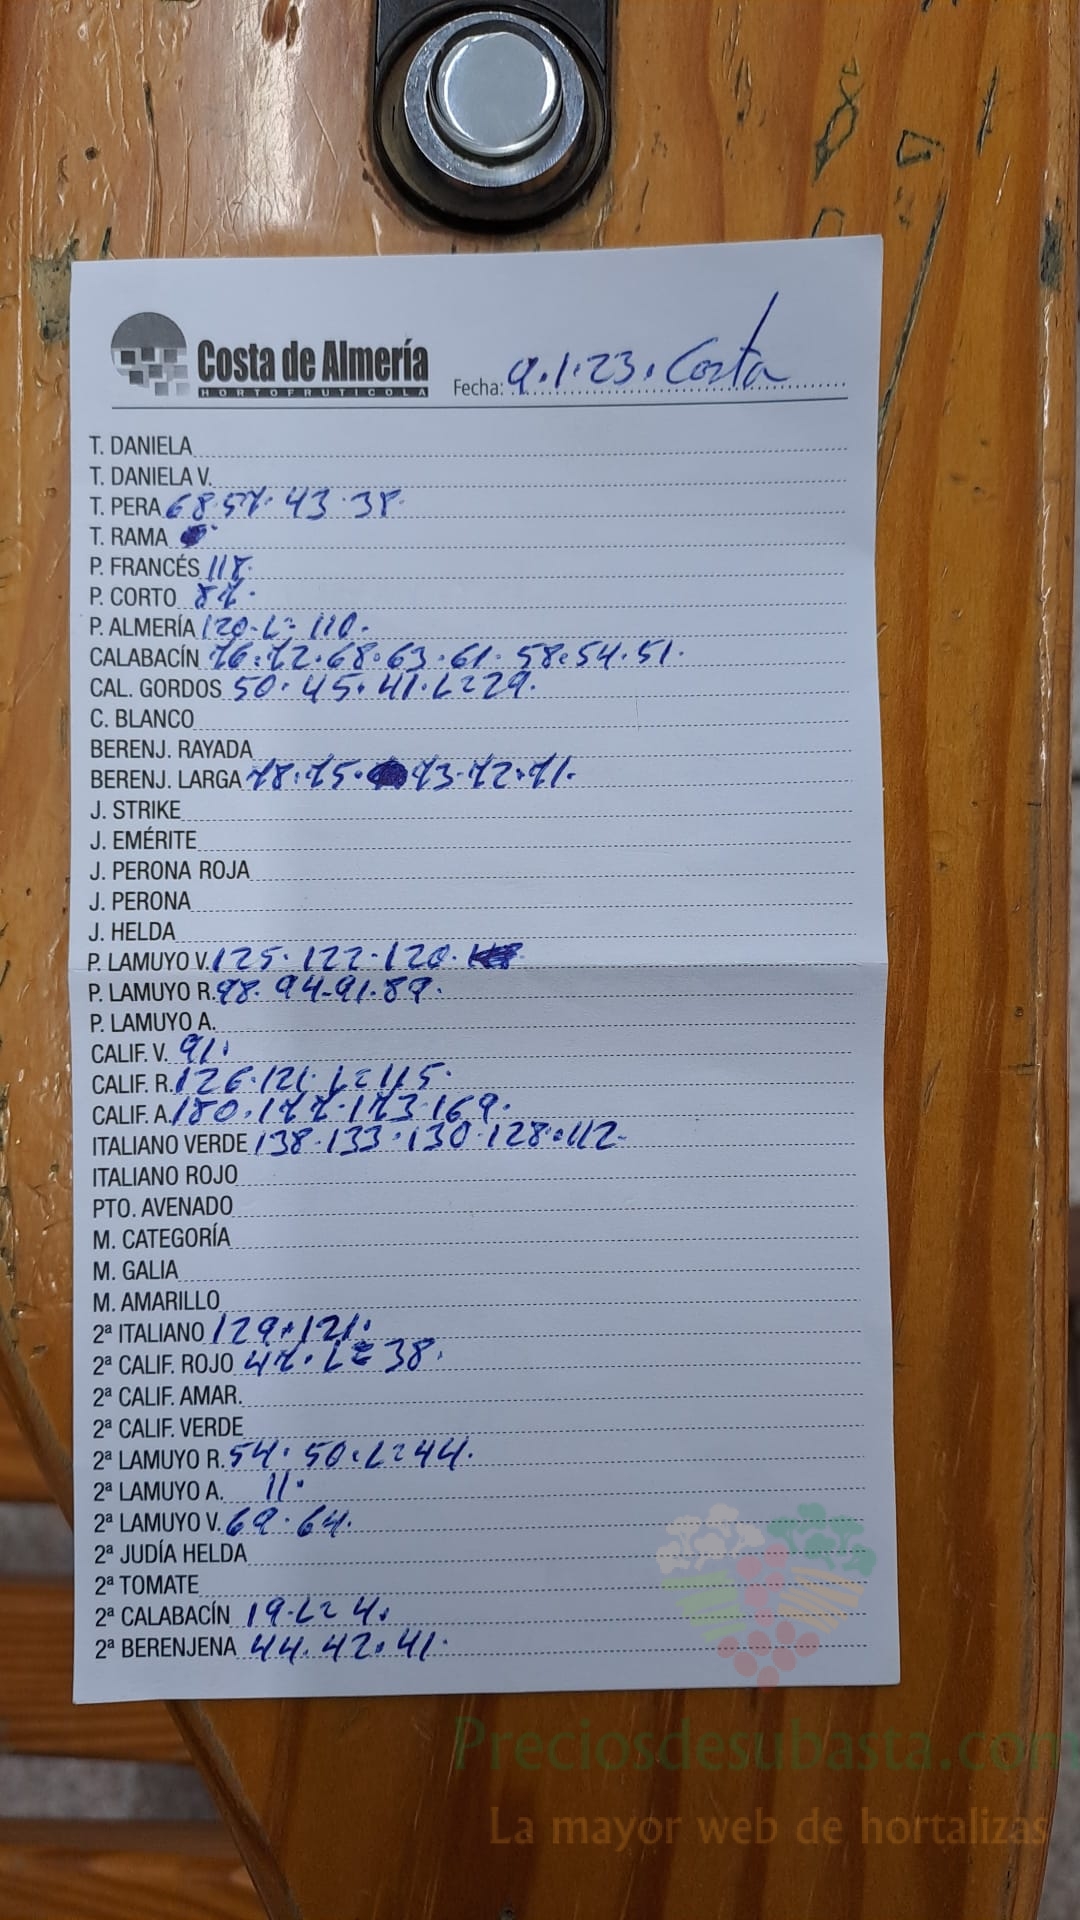 Costa de Almería
HORTOFRUTICOLA
Fecha: 9.1.23. Costa
T. DANIELA
T. DANIELA V.
T. PERA 68.57. 43.38.
T. RAMA
P. FRANCÉS 118.
P. CORTO 87.
P. ALMERÍA 120-L= 110.
CALABACÍN 76.72.68.63.61.58.54.51.
CAL. GORDOS 50. 45. 41. L=29.
C. BLANCO
BERENJ. RAYADA
BERENJ. LARGA 78.75. 73-72.71.
J. STRIKE
J. EMÉRITE
J. PERONA ROJA
J. PERONA
J. HELDA
P. LAMUYO V. 125. 122. 120.
P. LAMUYO R. 98. 94-91.89.
P. LAMUYO A.
CALIF. V. 91.
CALIF. R. 126.121. L=115.
CALIF. A. 180.177.173.169.
ITALIANO VERDE 138.133.130.128.112-
ITALIANO ROJO
PTO. AVENADO
M. CATEGORÍA
M. GALIA
M. AMARILLO
2ª ITALIANO 129.121.
2ª CALIF. ROJO 47. L=38.
2ª CALIF. AMAR.
2ª CALIF. VERDE
2ª LAMUYO R. 54. 50. L=44.
2ª LAMUYO A. 11.
2ª LAMUYO V. 69.64.
2ª JUDÍA HELDA
2ª TOMATE
2ª CALABACÍN 19-L= 4.
2ª BERENJENA 44. 42. 41.
Preciosdesubasta.com
La mayor web de hortalizas